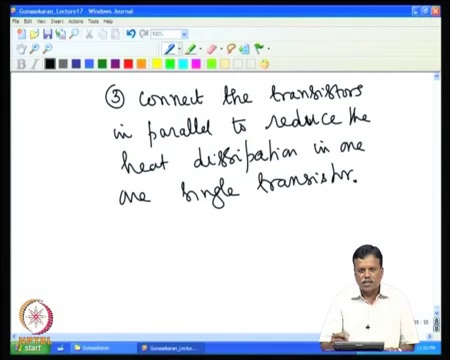 Gunasekaran_Lecture17 - Windows Journal
File Edit View Insert Actions Tools Help
100%
B I
③ Connect the transistors
in parallel to reduce the
heat dissipation in one
one single transistor.
NPTEL
start
Gunasekaran
Gunasekaran_Lectu...